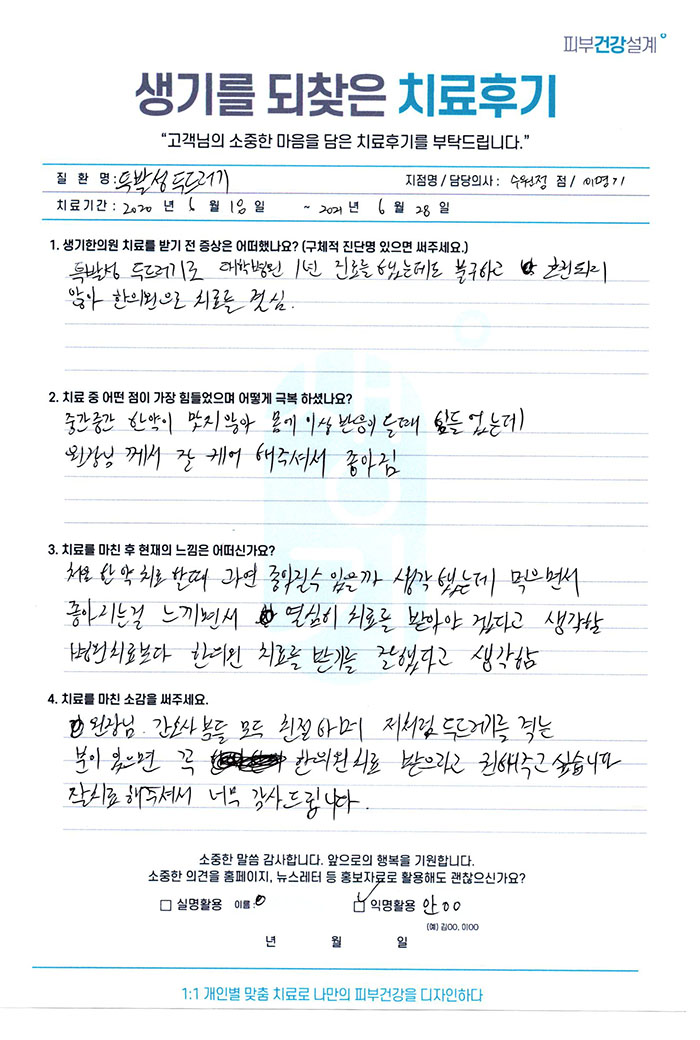 피부건강설계
생기를 되찾은 치료후기
“고객님의 소중한 마음을 담은 치료후기를 부탁드립니다.”
질 환 명 : 특발성 두드러기 지점명 / 담당의사 : 수원점 점 / 이명기
치료기간 : 2020 년 6 월 10 일 ~ 2021 년 6 월 28 일
1. 생기한의원 치료를 받기 전 증상은 어떠했나요? (구체적 진단명 있으면 써주세요.)
특발성 두드러기로 대학병원 1년 진료를 했는데도 불구하고 호전되지
않아 한의원으로 치료를 하심.
2. 치료 중 어떤 점이 가장 힘들었으며 어떻게 극복 하셨나요?
중간중간 한약이 맞지않아 몸에 이상반응이 올때 힘들었는데
원장님 께서 잘 케어 해주셔서 좋아짐
3. 치료를 마친 후 현재의 느낌은 어떠신가요?
처음 한약치료 할때 과연 좋아질수 있을까 생각 했는데 먹으면서
좋아지는걸 느끼면서 열심히 치료를 받아야 겠다고 생각함
병원치료보다 한의원 치료를 받기를 잘했다고 생각함
4. 치료를 마친 소감을 써주세요.
원장님. 간호사분들 모두 친절하며 저처럼 두드러기를 격는
분이 있으면 꼭 한의원치료 받으라고 권해주고 싶습니다
잘치료해주셔서 너무 감사드립니다.
소중한 말씀 감사합니다. 앞으로의 행복을 기원합니다.
소중한 의견을 홈페이지, 뉴스레터 등 홍보자료로 활용해도 괜찮으신가요?
실명활용 이름 : 익명활용 안00
(예) 김00, 이00
년 월 일
1:1 개인별 맞춤 치료로 나만의 피부건강을 디자인하다